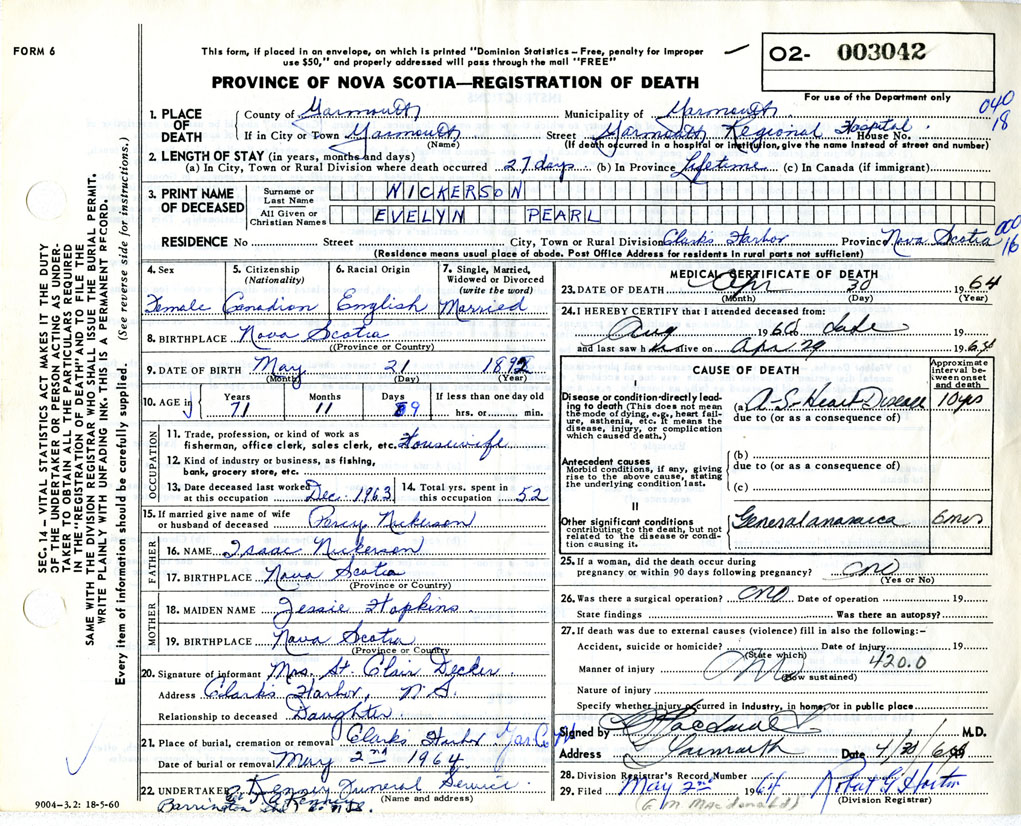 FORM 6
This form, if placed in an envelope, on which is printed "Dominion Statistics – Free, penalty for improper
use $50," and properly addressed will pass through the mail "FREE"
02- 003042
PROVINCE OF NOVA SCOTIA—REGISTRATION OF DEATH
For use of the Department only
040
18
1. PLACE OF DEATH
County of Yarmouth Municipality of Yarmouth
If in City or Town Yarmouth (Name) Street Yarmouth Regional Hospital House No.
(If death occurred in a hospital or institution, give the name instead of street and number)
2. LENGTH OF STAY (in years, months and days)
(a) In City, Town or Rural Division where death occurred 27 days (b) In Province Lifetime (c) In Canada (if immigrant)
3. PRINT NAME OF DECEASED
Surname or Last Name NICKERSON
All Given or Christian Names EVELYN PEARL
RESIDENCE No Street City, Town or Rural Division Clark's Harbor Province Nova Scotia
000
16
(Residence means usual place of abode. Post Office Address for residents in rural parts not sufficient)
4. Sex Female
5. Citizenship (Nationality) Canadian
6. Racial Origin English
7. Single, Married, Widowed or Divorced (write the word) Married
8. BIRTHPLACE Nova Scotia
(Province or Country)
9. DATE OF BIRTH May 21 1892
(Month) (Day) (Year)
10. AGE in Years 71 Months 11 Days 9 If less than one day old hrs. or min.
OCCUPATION
11. Trade, profession, or kind of work as
fisherman, office clerk, sales clerk, etc. Housewife
12. Kind of industry or business, as fishing,
bank, grocery store, etc.
13. Date deceased last worked at this occupation Dec. 1963
14. Total yrs. spent in this occupation 52
15. If married give name of wife
or husband of deceased Percy Nickerson
FATHER
16. NAME Isaac Nickerson
17. BIRTHPLACE Nova Scotia
(Province or Country)
MOTHER
18. MAIDEN NAME Jessie Hopkins
19. BIRTHPLACE Nova Scotia
(Province or Country)
20. Signature of informant Mrs. St. Clair Decker
Address Clark's Harbor, N.S.
Relationship to deceased Daughter
21. Place of burial, cremation or removal Clark's Harbor
Date of burial or removal May 2nd 1964
22. UNDERTAKER Kenney Funeral Service
(Name and address)
Barrington
9004–3.2: 18-5-60
MEDICAL CERTIFICATE OF DEATH
23. DATE OF DEATH Apr 30 1964
(Month) (Day) (Year)
24. I HEREBY CERTIFY that I attended deceased from:
Aug 1960 date 19
and last saw h alive on Apr 29 1964
CAUSE OF DEATH
Approximate interval between onset and death
I
Disease or condition directly leading to death (This does not mean the mode of dying, e.g., heart failure, asthenia, etc. It means the disease, injury, or complication which caused death.)
(a) A-S. Heart Disease 10 yrs
due to (or as a consequence of)
Antecedent causes
Morbid conditions, if any, giving rise to the above cause, stating the underlying condition last.
(b)
due to (or as a consequence of)
(c)
II
Other significant conditions
contributing to the death, but not related to the disease or condition causing it.
General anasarca 6 mos
25. If a woman, did the death occur during
pregnancy or within 90 days following pregnancy? no
(Yes or No)
26. Was there a surgical operation? no Date of operation 19
State findings Was there an autopsy?
27. If death was due to external causes (violence) fill in also the following:–
Accident, suicide or homicide? Date of injury 19
(State which)
Manner of injury 420.0
(How sustained)
Nature of injury
Specify whether injury occurred in industry, in home, or in public place
Signed by M.D.
Address Yarmouth Date 4/30/64
28. Division Registrar's Record Number
29. Filed May 2nd 1964 Robert G Horton
(Division Registrar)
(G M Macdonald)
SEC. 14 – VITAL STATISTICS ACT MAKES IT THE DUTY
OF THE UNDERTAKER OR PERSON ACTING AS UNDER-
TAKER TO OBTAIN ALL THE PARTICULARS REQUIRED
IN THE "REGISTRATION OF DEATH" AND TO FILE THE
SAME WITH THE DIVISION REGISTRAR WHO SHALL ISSUE THE BURIAL PERMIT.
WRITE PLAINLY WITH UNFADING INK. THIS IS A PERMANENT RECORD.
Every item of information should be carefully supplied. (See reverse side for instructions.)